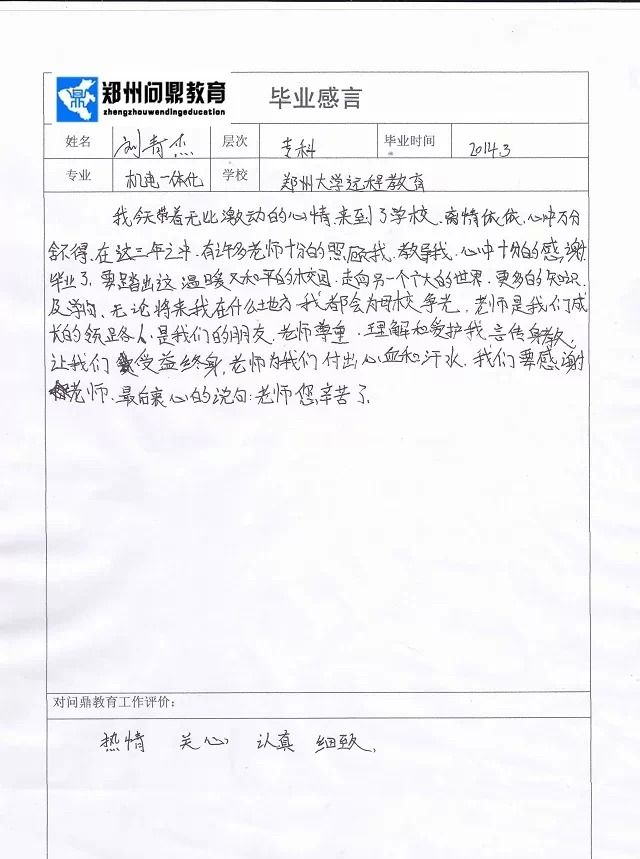 郑州问鼎教育
zhengzhouwendingeducation
毕业感言
姓名 刘青杰 层次 专科 毕业时间 2014.3
专业 机电一体化 学校 郑州大学远程教育
我今天带着无比激动的心情来到了学校,离情依依,心中万分
舍不得,在这三年之中,有许多老师十分的照顾我,教导我,心中十分的感谢
毕业了,要踏出这温暖又和平的校园,走向另一个广大的世界,更多的知识
及学的,无论将来我在什么地方,我都会为母校争光,老师是我们成
长的领路人,是我们的朋友,老师尊重,理解和爱护我,言传身教,
让我们受益终身,老师为我们付出心血和汗水,我们要感谢
老师,最后衷心的说句:老师您辛苦了
对问鼎教育工作评价:
热情 关心 认真 细致,